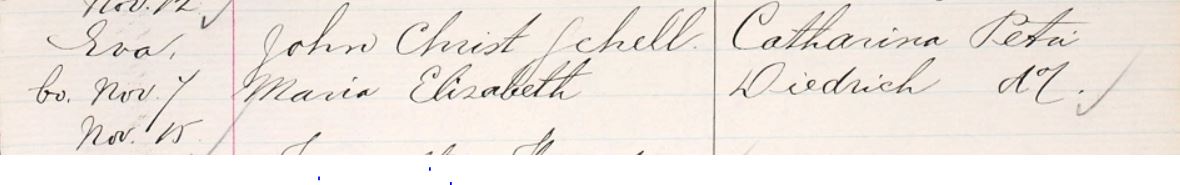 Nov. 12
Eva, John Christ Schell. Catharina Petri
bo. Nov. 7 Maria Elisabeth Diedrich
Nov. 15